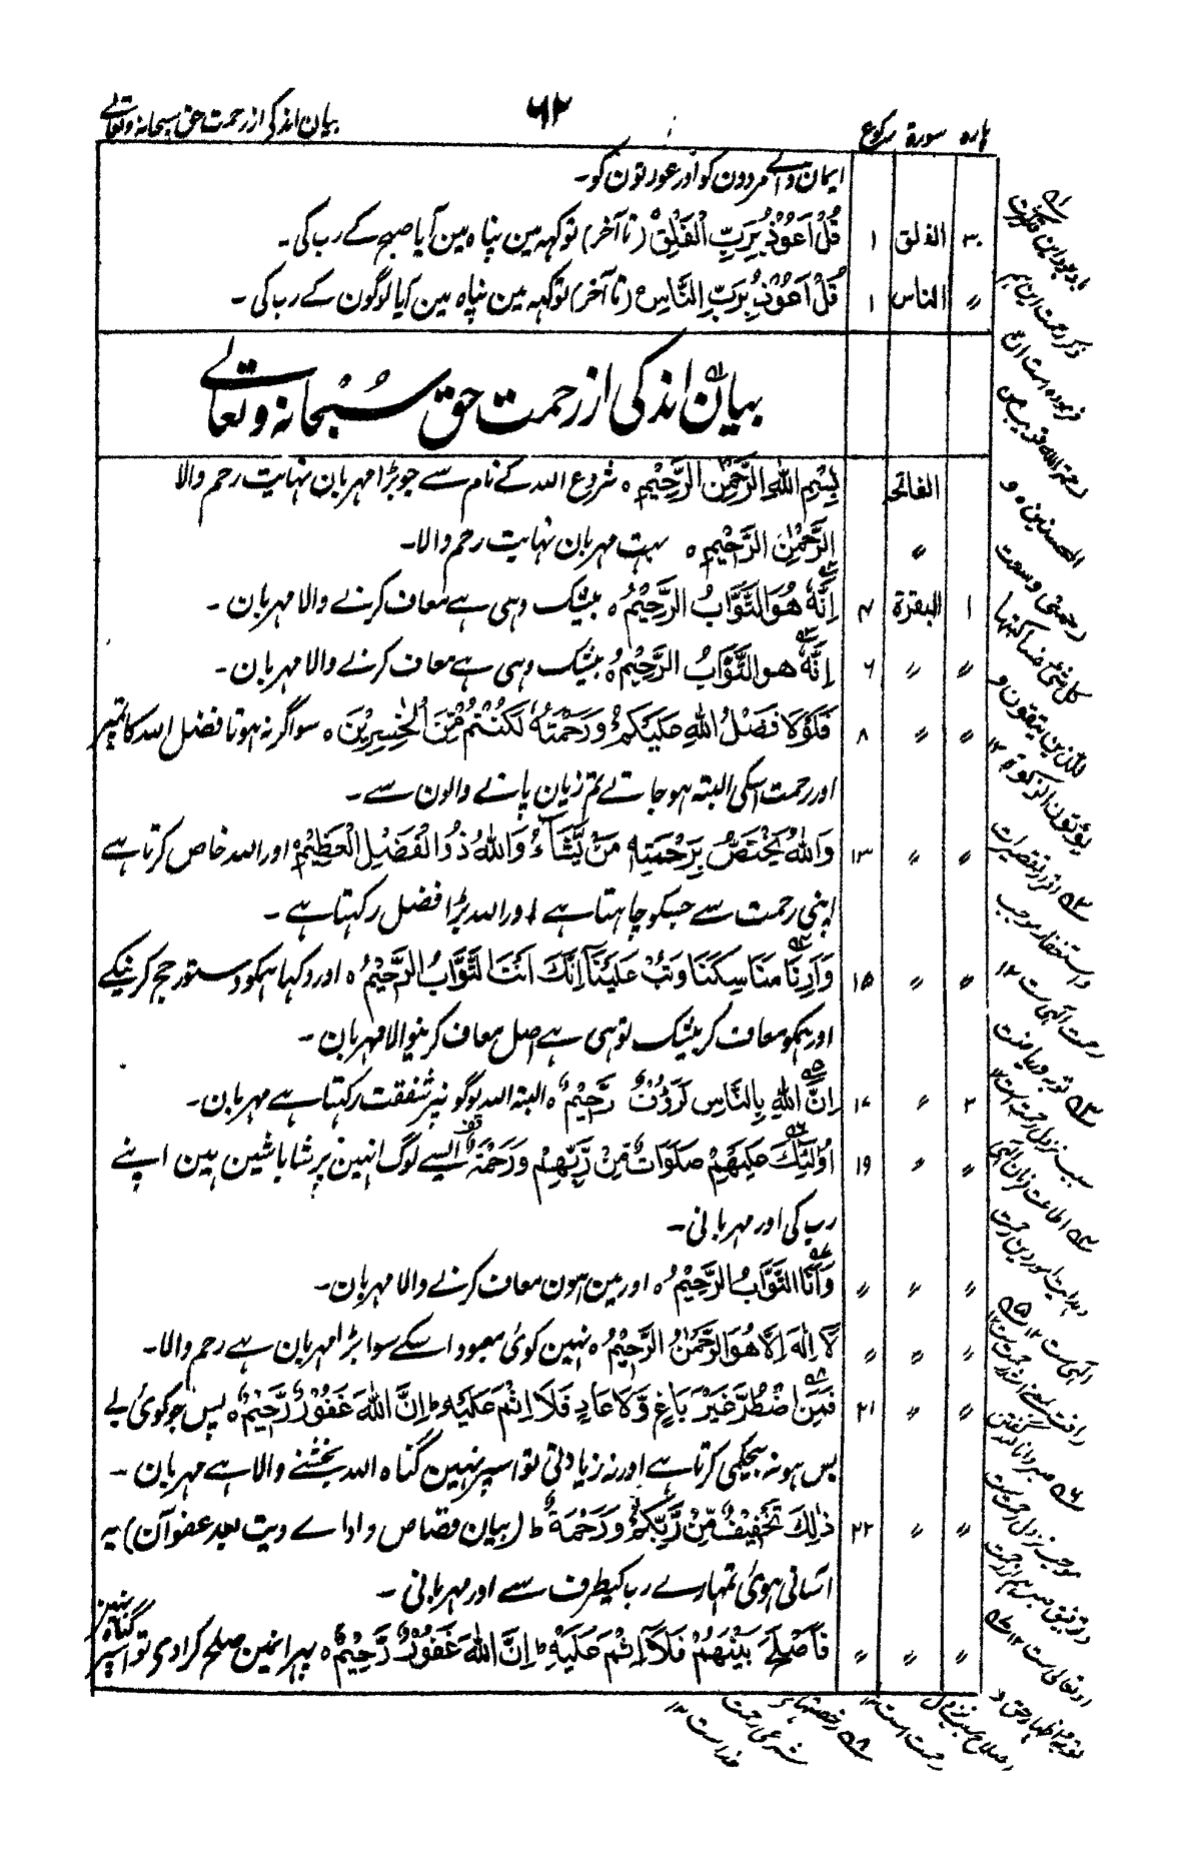 پارہ سورۃ رکوع ۶۲ بیان اندکی از رحمت حق سبحانہ وتعالے
ایمان والے مردون کو اور عورتون کو۔
۳۰ الفلق ۱ قُلْ اَعُوْذُ بِرَبِّ الْفَلَقِ (تا آخر) تو کہہ مین پناہ مین آیا صبح کے رب کی۔
〃 الناس ۱ قُلْ اَعُوْذُ بِرَبِّ النَّاسِ ہ (تا آخر) تو کہہ مین پناہ مین آیا لوگون کے رب کی۔
بیان اندکی از رحمت حق سُبْحانہ وتعالے
الفاتحہ بِسْمِ اللهِ الرَّحْمٰنِ الرَّحِيْمِ ہ شروع اللہ کے نام سے جو بڑا مہربان نہایت رحم والا
〃 الرَّحْمٰنِ الرَّحِيْمِ ہ بہت مہربان نہایت رحم والا۔
۱ البقرۃ ۴ اِنَّهٗ هُوَ التَّوَّابُ الرَّحِيْمُ ہ بیشک وہی ہے معاف کرنے والا مہربان۔
〃 〃 ۶ اِنَّهٗ هو التَّوَّابُ الرَّحِيْمُ ہ بیشک وہی ہے معاف کرنے والا مہربان۔
〃 〃 ۸ فَلَوْلَا فَضْلُ اللهِ عَلَيْكُمْ وَرَحْمَتُهٗ لَكُنْتُمْ مِّنَ الْخٰسِرِيْنَ ہ سو اگر نہ ہوتا فضل اللہ کا تمپر
اور رحمت اسکی البتہ ہوجاتے تم زیان پانے والون سے۔
〃 〃 ۱۳ وَاللهُ يَخْتَصُّ بِرَحْمَتِهٖ مَنْ يَّشَآءُ وَاللهُ ذُو الْفَضْلِ الْعَظِيْمِ ہ اور اللہ خاص کرتا ہے
اپنی رحمت سے جسکو چاہتا ہے اور اللہ بڑا فضل رکہتا ہے۔
〃 〃 ۱۵ وَاَرِنَا مَنَاسِكَنَا وَتُبْ عَلَيْنَا اِنَّكَ اَنْتَ التَّوَّابُ الرَّحِيْمُ ہ اور دکہا ہمکو دستور حج کرنیکے
اور ہمکو معاف کر بیشک توہی ہے اصل معاف کرنیوالا مہربان۔
۲ 〃 ۱۷ اِنَّ اللهَ بِالنَّاسِ لَرَؤُفٌ رَّحِيْمٌ ہ البتہ اللہ لوگونپر شفقت رکہتا ہے مہربان۔
〃 〃 ۱۹ اُولٰٓئِكَ عَلَيْهِمْ صَلَوَاتٌ مِّنْ رَّبِّهِمْ وَرَحْمَةٌ ایسے لوگ انہین پر شاباشین ہین اپنے
رب کی اور مہربانی۔
〃 〃 〃 وَاَنَا التَّوَّابُ الرَّحِيْمُ ہ اور مین ہون معاف کرنے والا مہربان۔
〃 〃 〃 لَا اِلٰهَ اِلَّا هُوَ الرَّحْمٰنُ الرَّحِيْمُ ہ نہین کوئی معبود اسکے سوا بڑا مہربان ہے رحم والا۔
〃 〃 ۲۱ فَمَنِ اضْطُرَّ غَيْرَ بَاغٍ وَّلَا عَادٍ فَلَا اِثْمَ عَلَيْهِ ط اِنَّ اللهَ غَفُوْرٌ رَّحِيْمٌ ہ پس جو کوئی بے
بس ہو نہ بیحکمی کرتا ہے اور نہ زیادتی تو اسپر نہین گناہ اللہ بخشنے والا ہے مہربان۔
〃 〃 ۲۲ ذٰلِكَ تَخْفِيْفٌ مِّنْ رَّبِّكُمْ وَرَحْمَةٌ ط (بیان قصاص و اداے دیت بعد عفو آن) یہ
آسانی ہوئی تمہارے رب کیطرف سے اور مہربانی۔
〃 〃 〃 فَاَصْلَحَ بَيْنَهُمْ فَلَا اِثْمَ عَلَيْهِ ط اِنَّ اللهَ غَفُوْرٌ رَّحِيْمٌ ہ پہر انمین صلح کرادی تو اسپر گناہ نہین
ذکر رحمت این ہم
فرمودہ است ان
رحمۃ اللہ قریب من
المحسنین ہ و
رحمتی وسعت
کل شئی فساکتبہا
للذین یتقون و
یؤتون الزکوۃ ۱۲
۵۲ اقرار تقصیرات
واستغفار موجب
رحمت الٰہی ست ۱۲